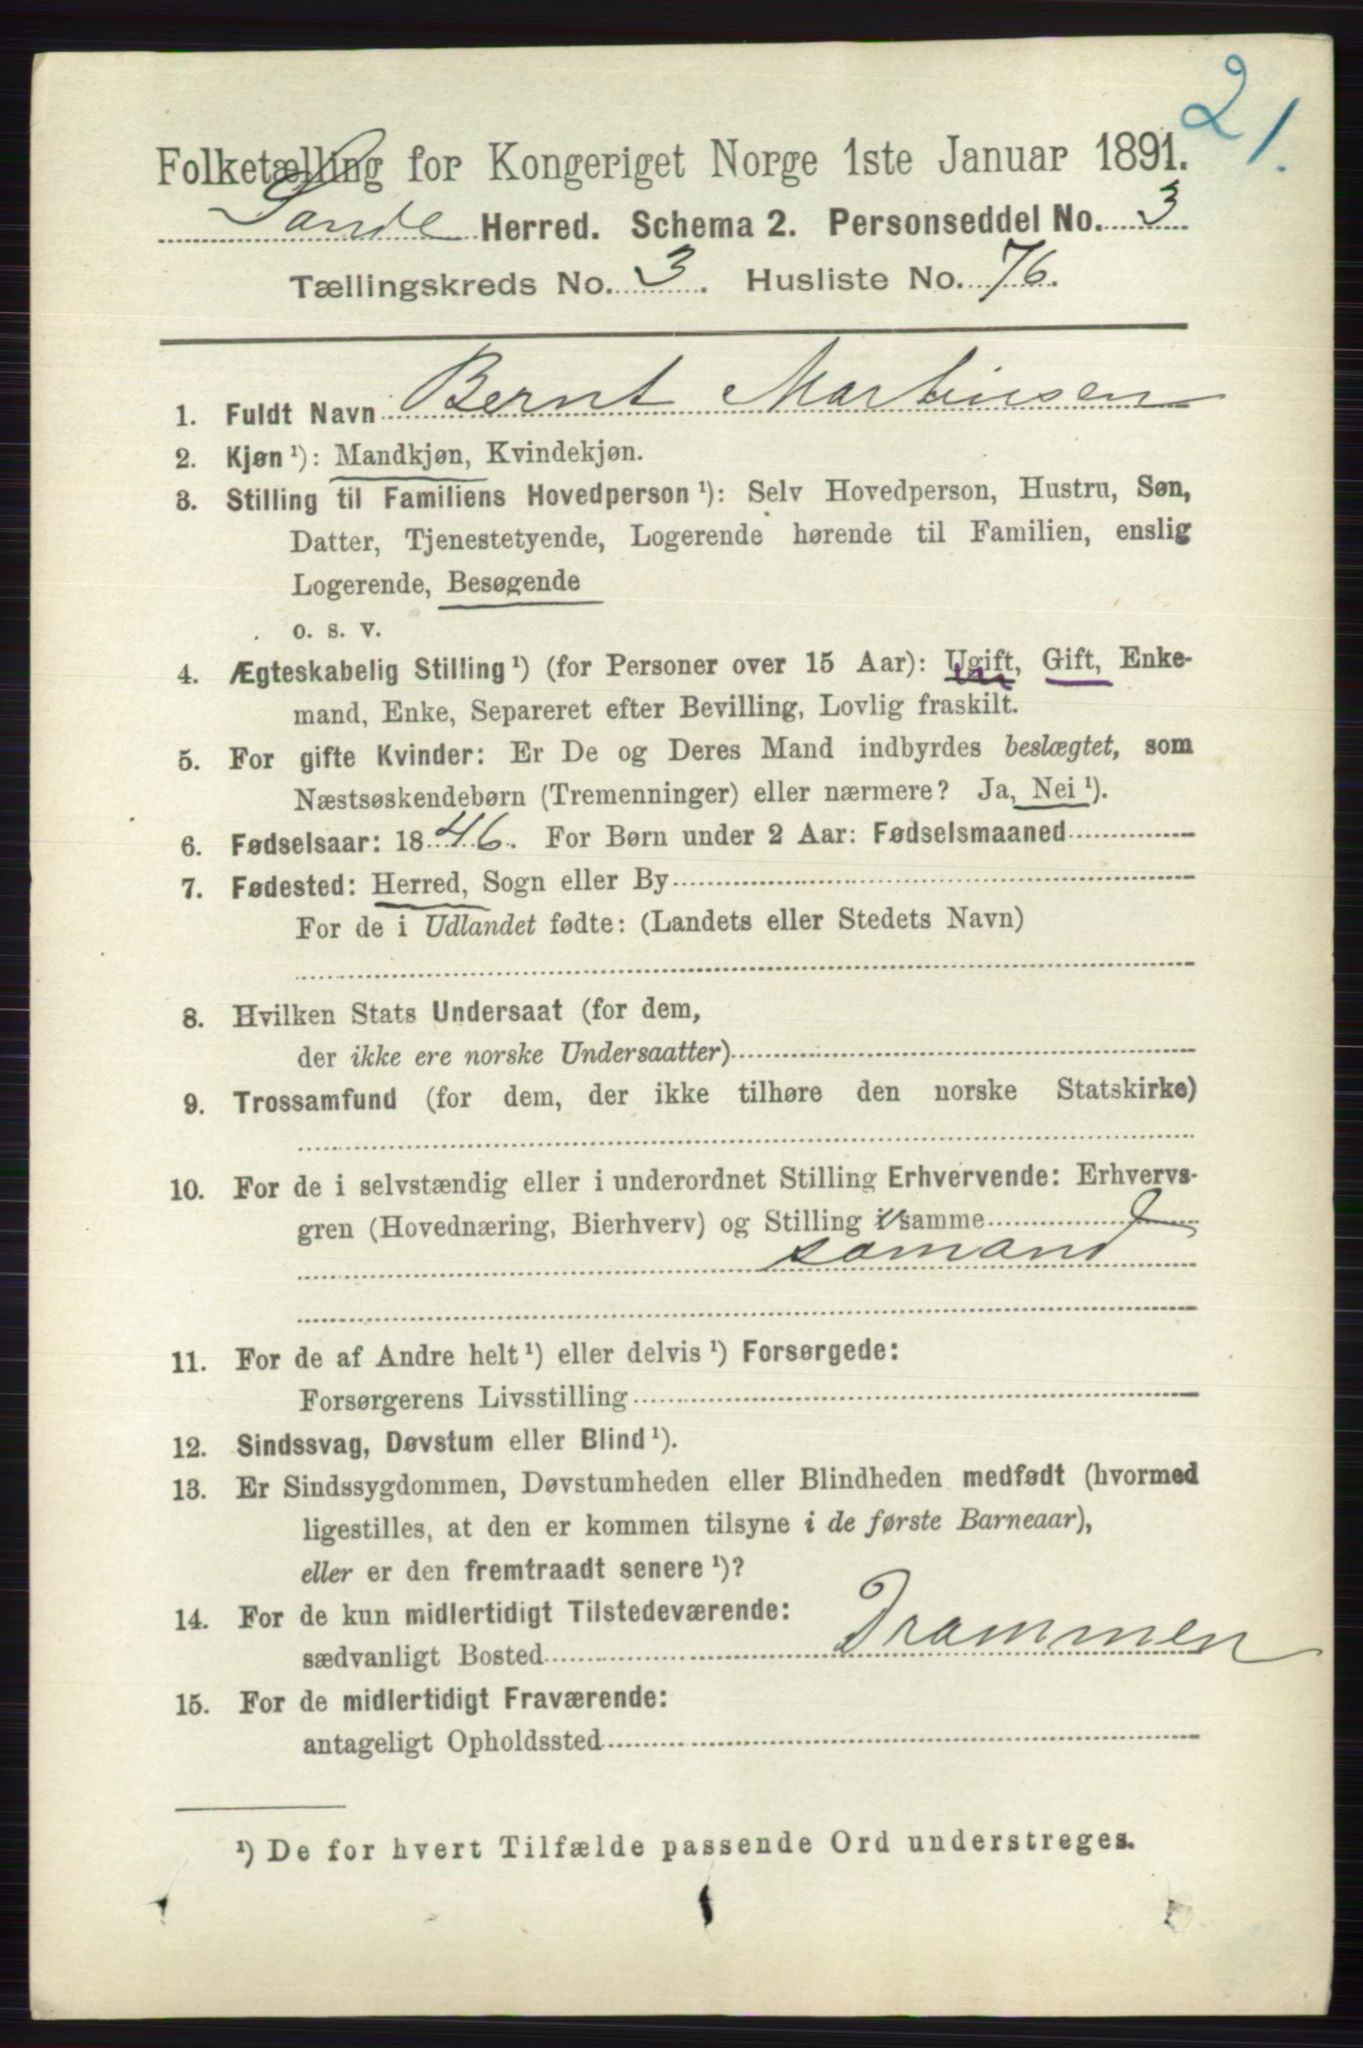 21.
Folketælling for Kongeriget Norge 1ste Januar 1891.
Sande Herred. Schema 2. Personseddel No. 3
Tællingskreds No. 3. Husliste No. 76.
1. Fuldt Navn Bernt Martinsen
2. Kjøn ¹): Mandkjøn, Kvindekjøn.
3. Stilling til Familiens Hovedperson ¹): Selv Hovedperson, Hustru, Søn,
Datter, Tjenestetyende, Logerende hørende til Familien, enslig
Logerende, Besøgende
o. s. v.
4. Ægteskabelig Stilling ¹) (for Personer over 15 Aar): Ugift, Gift, Enke-
mand, Enke, Separeret efter Bevilling, Lovlig fraskilt.
5. For gifte Kvinder: Er De og Deres Mand indbyrdes beslægtet, som
Næstsøskendebørn (Tremenninger) eller nærmere? Ja, Nei ¹).
6. Fødselsaar: 1846. For Børn under 2 Aar: Fødselsmaaned
7. Fødested: Herred, Sogn eller By
For de i Udlandet fødte: (Landets eller Stedets Navn)
8. Hvilken Stats Undersaat (for dem,
der ikke ere norske Undersaatter)
9. Trossamfund (for dem, der ikke tilhøre den norske Statskirke)
10. For de i selvstændig eller i underordnet Stilling Erhvervende: Erhvervs-
gren (Hovednæring, Bierhverv) og Stilling i samme
sømand
11. For de af Andre helt ¹) eller delvis ¹) Forsørgede:
Forsørgerens Livsstilling
12. Sindssvag, Døvstum eller Blind ¹).
13. Er Sindssygdommen, Døvstumheden eller Blindheden medfødt (hvormed
ligestilles, at den er kommen tilsyne i de første Barneaar),
eller er den fremtraadt senere ¹)?
14. For de kun midlertidigt Tilstedeværende:
sædvanligt Bosted Drammen
15. For de midlertidigt Fraværende:
antageligt Opholdssted
¹) De for hvert Tilfælde passende Ord understreges.